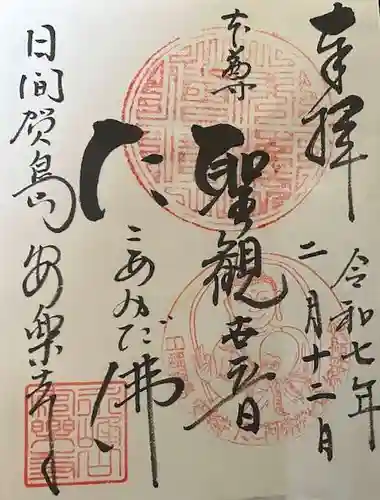 奉拝
令和七年
二月十二日
本尊
聖観世音
たこあみだ佛
日間賀島 安楽寺